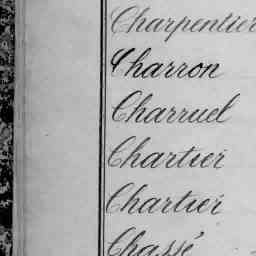 Charpentier
Charron
Charruel
Chartier
Chartier
Chassé